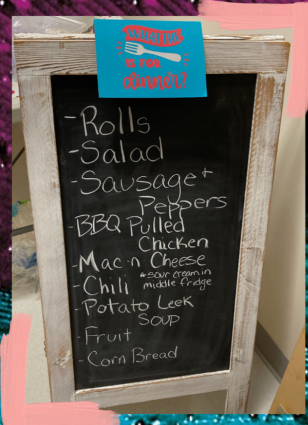 What
is for
dinner?
-Rolls
-Salad
-Sausage +
Peppers
-BBQ Pulled
Chicken
-Mac n' Cheese
-Chili *sour cream in
middle fridge
-Potato Leek
Soup
-Fruit
-Corn Bread